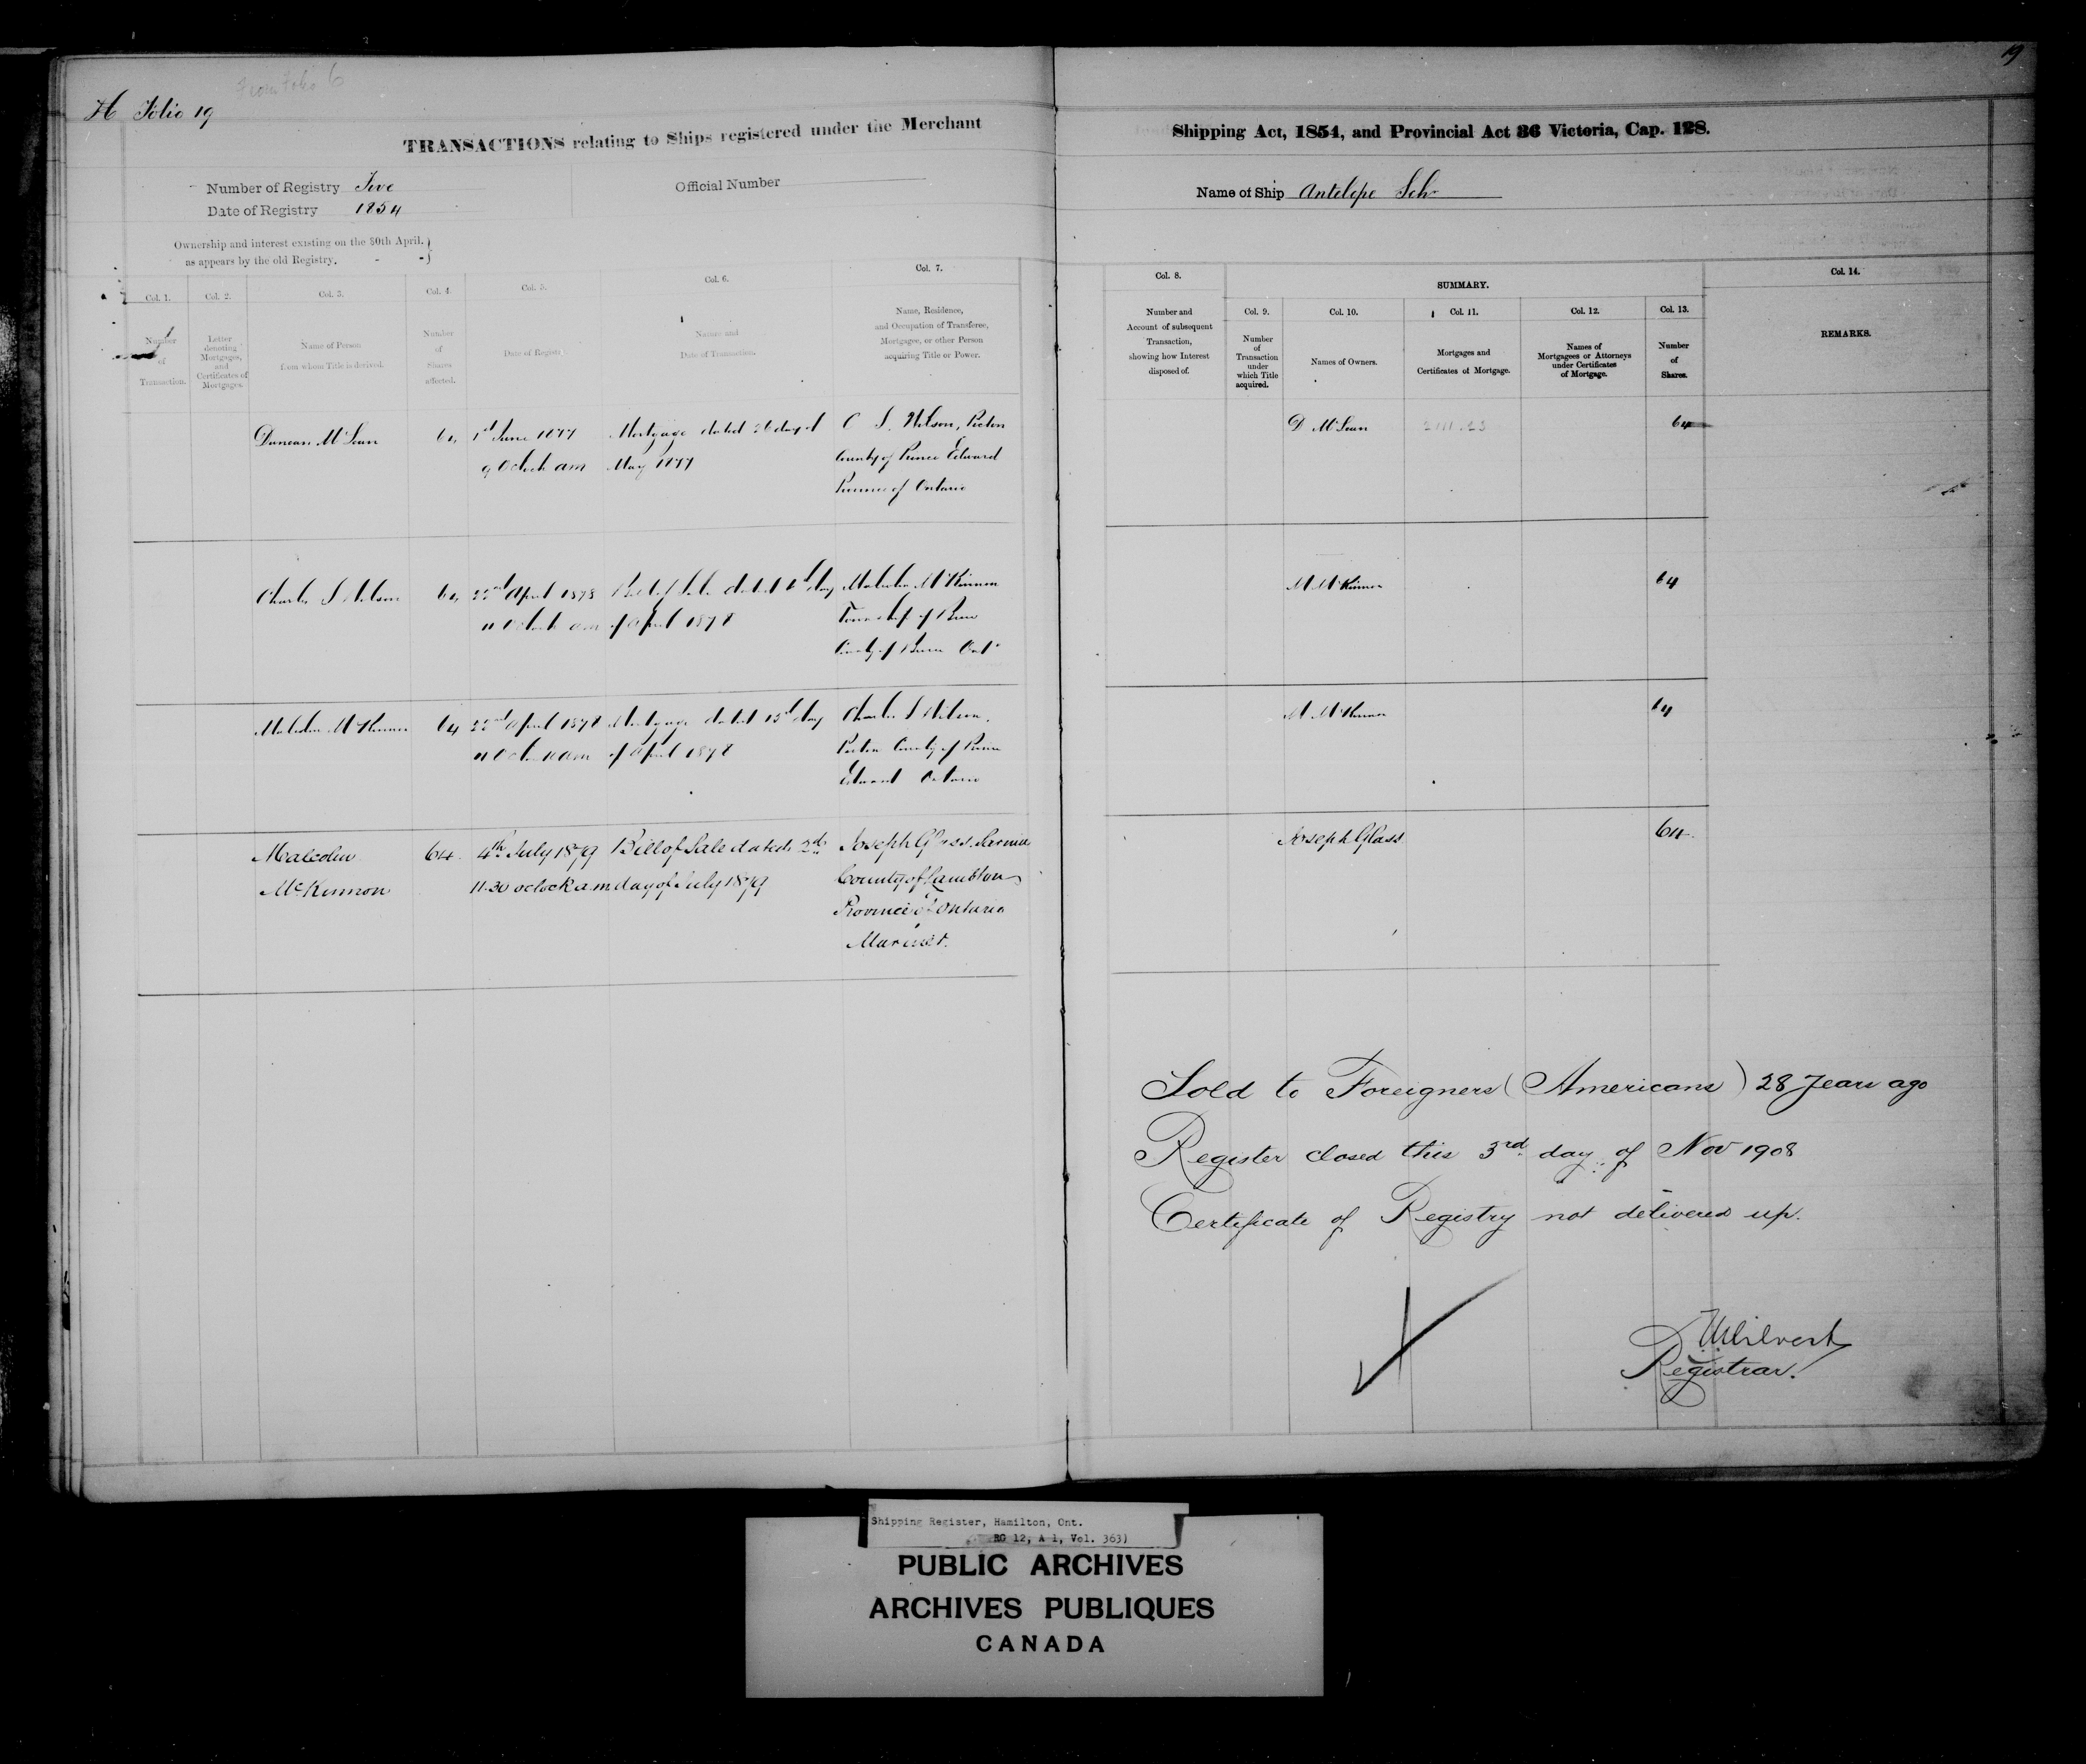 From Folio 6
19
H Folio 19
TRANSACTIONS relating to Ships registered under the Merchant Shipping Act, 1854, and Provincial Act 36 Victoria, Cap. 128.
Number of Registry Five
Official Number
Name of Ship Antelope Schr
Date of Registry 1854
Ownership and interest existing on the 30th April.
as appears by the old Registry.
Col. 1.
Number
of
Transaction.
Col. 2.
Letter
denoting
Mortgages,
and
Certificates of
Mortgages.
Col. 3.
Name of Person
from whom Title is derived.
Col. 4.
Number
of
Shares
affected.
Col. 5.
Date of Registry
Col. 6.
Nature and
Date of Transaction.
Col. 7.
Name, Residence,
and Occupation of Transferee,
Mortgagee, or other Person
acquiring Title or Power.
Col. 8.
Number and
Account of subsequent
Transaction,
showing how Interest
disposed of.
SUMMARY.
Col. 9.
Number
of
Transaction
under
which Title
acquired.
Col. 10.
Names of Owners.
Col. 11.
Mortgages and
Certificates of Mortgage.
Col. 12.
Names of
Mortgagees or Attorneys
under Certificates
of Mortgage.
Col. 13.
Number
of
Shares.
Col. 14.
REMARKS.
Duncan 64 1st June 1877 Mortgage dated 26 day of C S. Wilson, Picton
9 Oclock am May 1877 County of Prince Edward
Province of Ontario
D 64
Charles S Wilson 64 22nd April 1878 Bill of Sale dated day Malcolm McKinnon
11 Oclock am of April 1878 Township of Bruce
County of Bruce Ont
M McKinnon 64
Malcolm McKinnon 64 22nd April 1878 Mortgage dated 15th day Charles S Wilson,
11 Oclock am of April 1878 Picton County of Prince
Edward Ontario
M McKinnon 64
Malcolm 64. 4th July 1879 Bill of Sale dated 2nd Joseph Glass. Sarnia
McKinnon 11.30 oclock am day of July 1879 County of Lambton
Province of Ontario
Mariner.
Joseph Glass 64.
Sold to Foreigners (Americans) 28 Years ago
Register closed this 3rd day of Nov 1908
Certificate of Registry not delivered up.
Registrar.
Shipping Register, Hamilton, Ont.
RG 12, A 1, Vol. 363)
PUBLIC ARCHIVES
ARCHIVES PUBLIQUES
CANADA